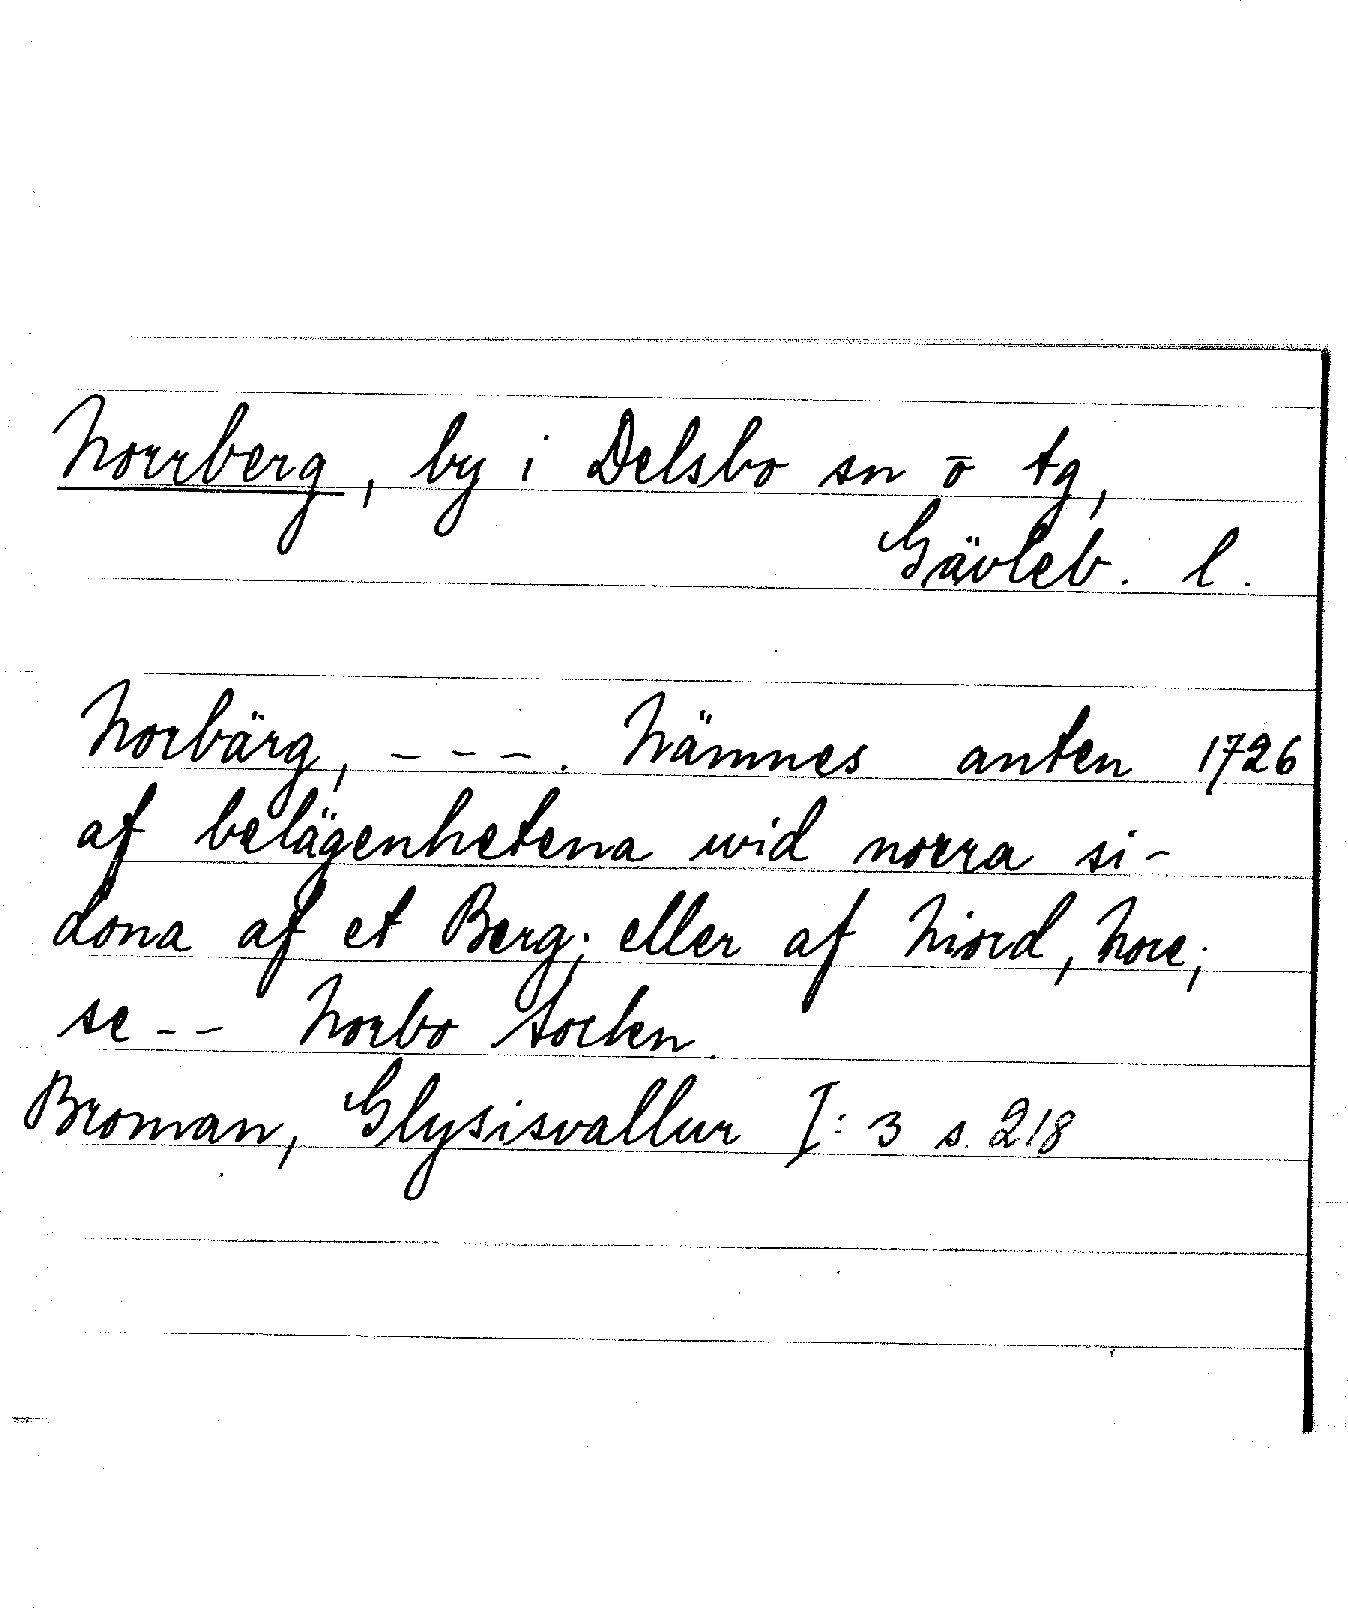 Norrberg, by i Delsbo sn o tg,
Gävleb. l.
Norbärg, - - -. Nämnes anten 1726
af belägenhetena wid norra si-
dona af et Berg; eller af Niord, Nore;
se - - Norbo socken.
Broman, Glysisvallur I: 3 s. 218